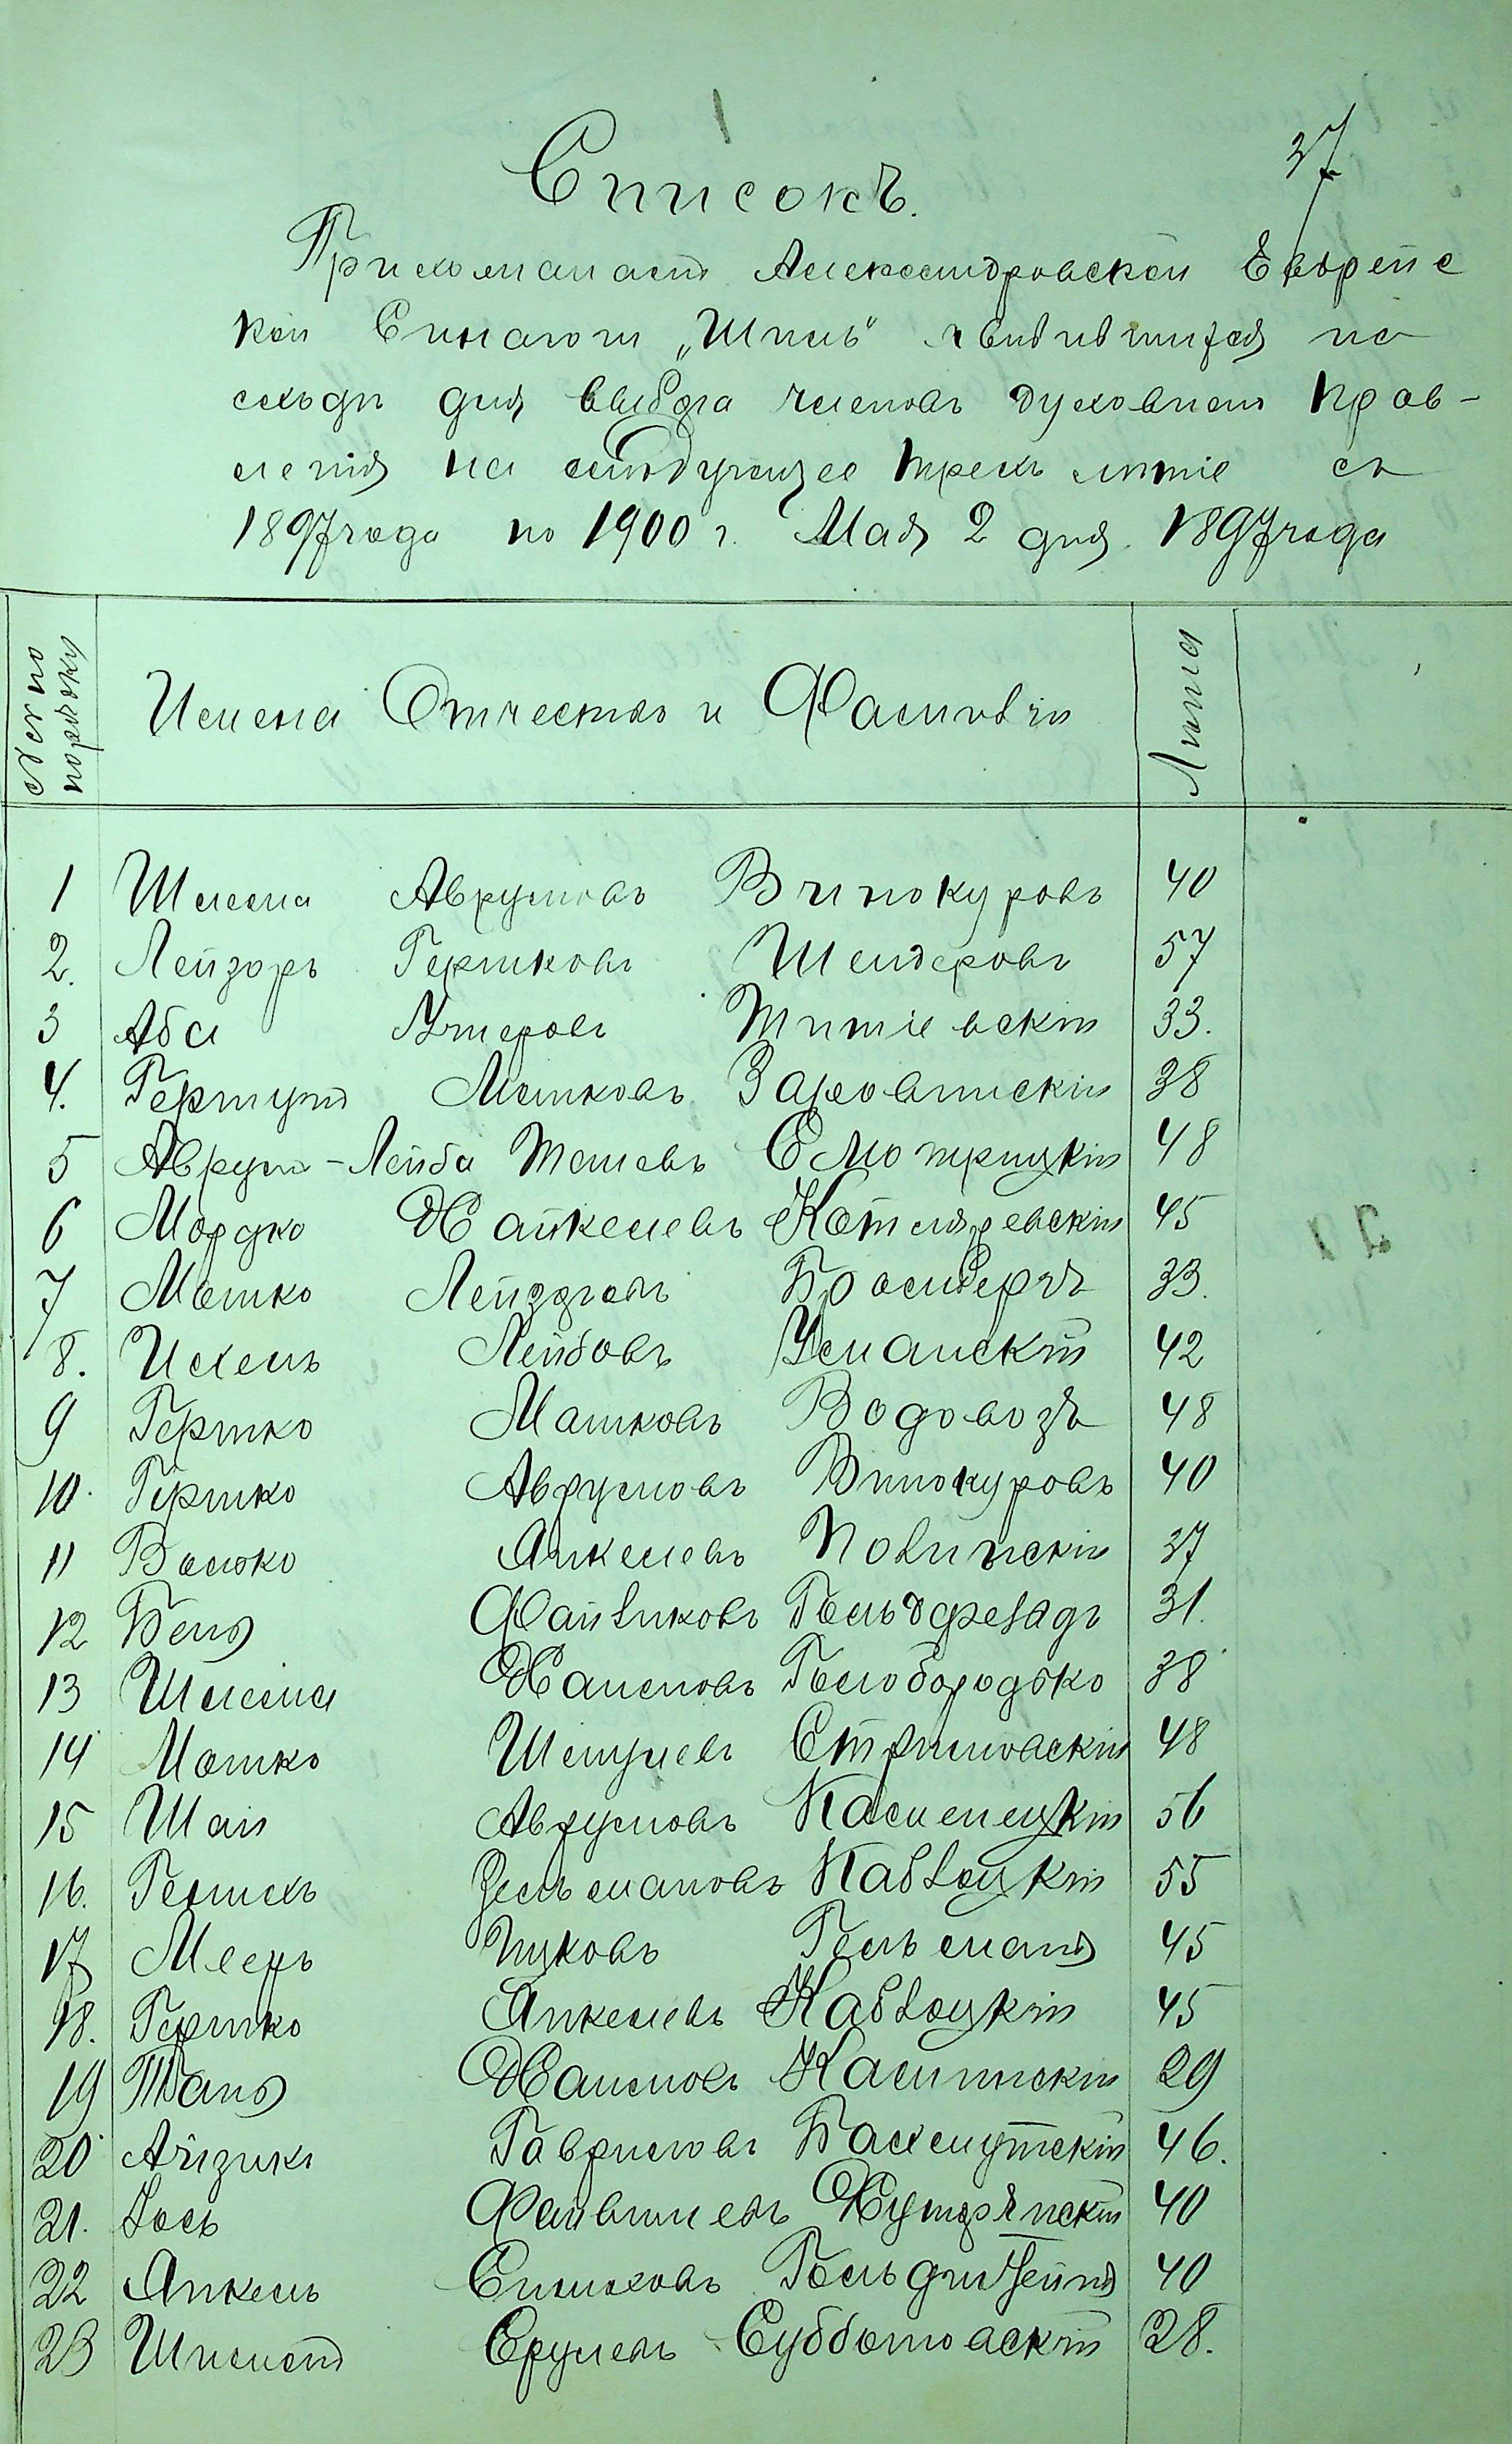 37
Списокъ.
Прихожанамъ Александровской Еврейс
кой Синагоги „Шпиль“ явившимся на
сходъ для выбора членовъ духовнаго прав-
ленія на слѣдующее трехъ лѣтіе съ
1897 года по 1900 г. Мая 2 дня. 1897 года
№ по порядку Имена Отчества и Фамиліи Лѣта
1 Шлема Аврумовъ Винокуровъ 40
2. Лейзоръ Гершковъ Шендеровъ 57
3 Аба Ушеровъ Титіевскій 33.
4. Гершунъ Мошковъ 38
5 Аврумъ-Лейба Смотрицкій 48
6 Мордко Хайкелевъ Котляревскій 45
7 Мошко Лейзоровъ 33.
8. Ихель Лейбовъ Уманскій 42
9 Гершко Мошковъ Водовозъ 48
10. Гершко Аврумовъ Винокуровъ 40
11 Волько Янкелевъ 37
12 Бенъ Файвиковъ 31.
13 Шлема Хаимовъ Голобородько 38
14 Мошко Шмулевъ 48
15 Шая Аврумовъ Каменецкій 56
16. Гелихъ Зельмановъ Кавлоцкій 55
17 Мееръ Ицковъ Гельманъ 45
18. Гершко Янкелевъ Кавлоцкій 45
19 Хаимовъ Калинскій 29
20 Айзикъ Гавриловъ Бахмутскій 46.
21. Іось Файвишевъ 40
22 Янкель Симховъ Гольдштейнъ 40
23 Шмулевъ Субботовскій 28.